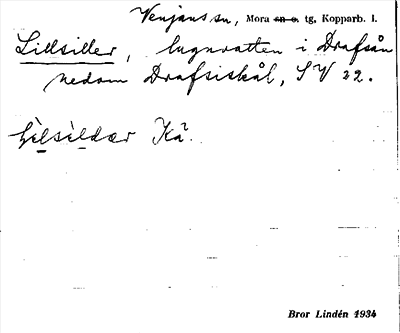 Venjans sn, Mora sn o. tg, Kopparb. l.
Lillsiller, lugnvatten i Drafsån
nedom Drafsiskål, SV 22.
lìlsìldær Kä.
Bror Lindén 1934